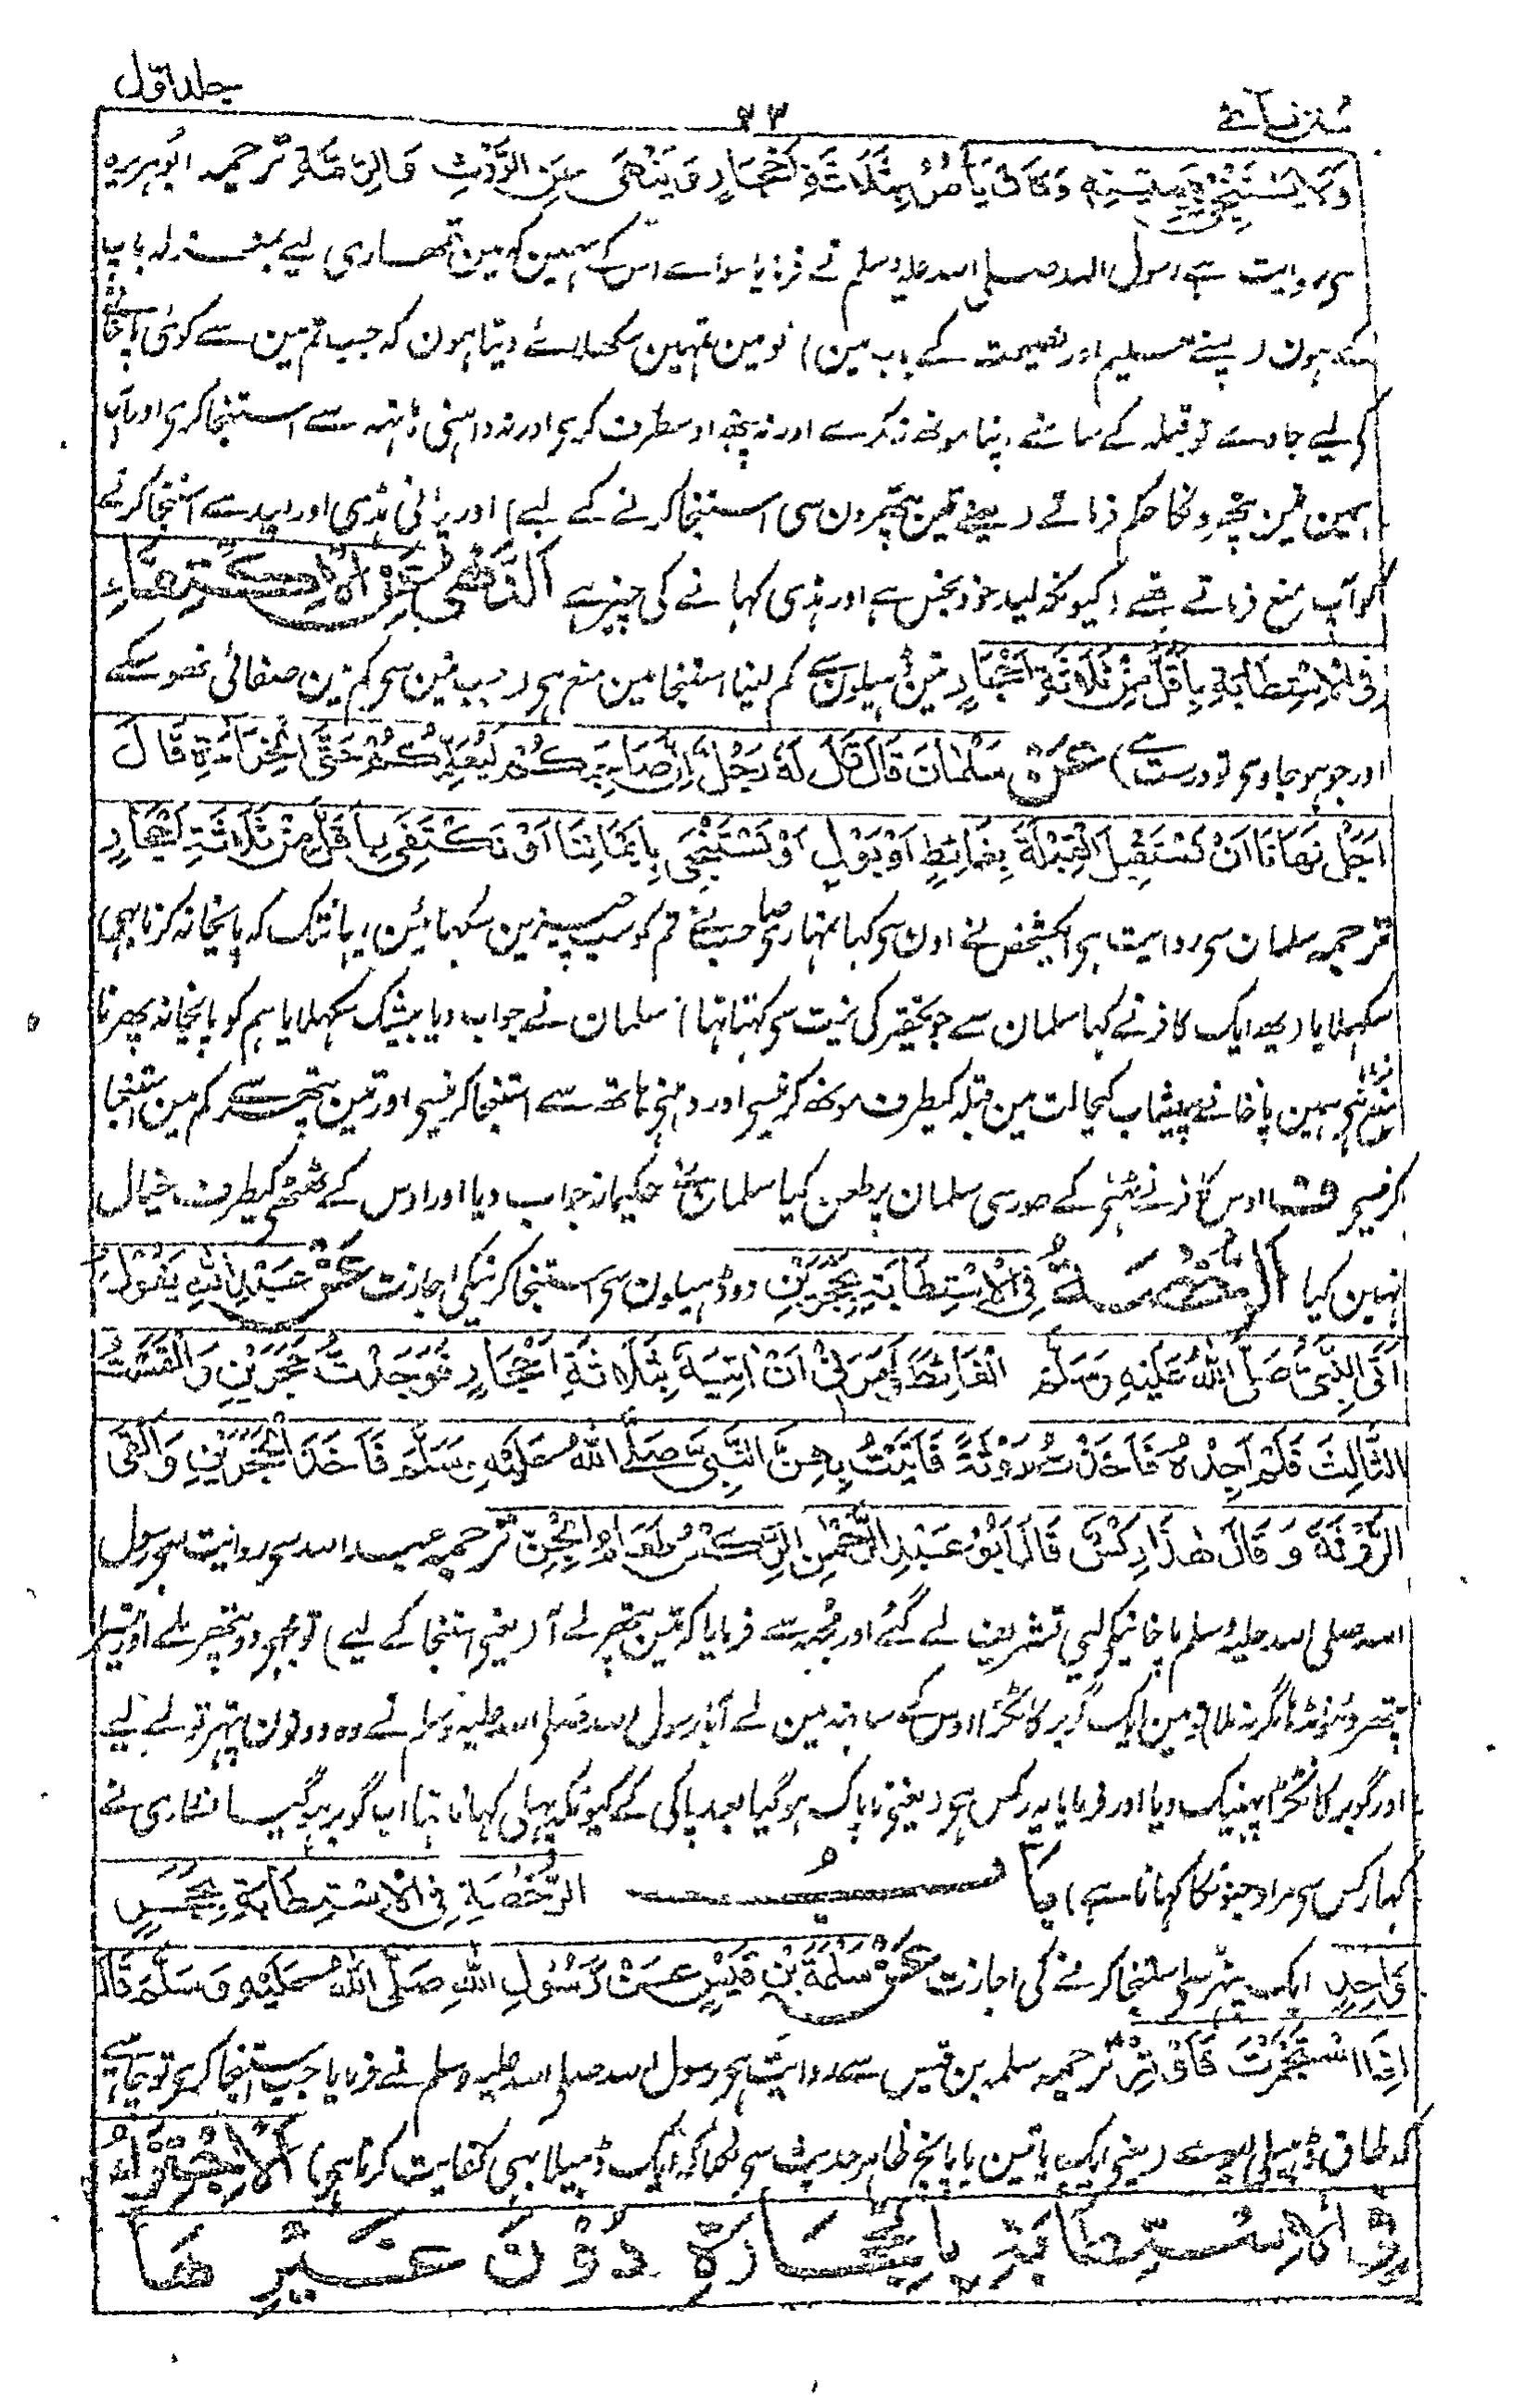 جلد اول
سنن نسائی
۲۳
وَلَا يَسْتَنْجِ بِيَمِينِهِ وَكَانَ يَأْمُرُ بِثَلَاثَةِ أَحْجَارٍ وَيَنْهَى عَنِ الرَّوْثِ وَالرِّمَّةِ ترجمہ ابوہریرہ
سی روایت ہے رسول اللہ صلی اللہ علیہ وسلم نے فرمایا سواے اس کے نہین کہ مین تمھاری لیے بمنزلہ باپ
کے ہون (یعنے تعلیم اور نصیحت کے باب مین) تو مین تمہین سکھلائے دیتا ہون کہ جب تم مین سے کوئی پاخانے
کے لیے جاوے تو قبلہ کے سامنے اپنا مونھ نہ کرے اور نہ پیٹھ اوسطرف کری اور نہ داہنی ہاتھ سے استنجا کری اور آپ
ہمین تین پتھرونکا حکم فرماتے (یعنے تین پتھرون سی استنجا کرنے کے لیے) اور پرانی ہڈی اور لید سے استنجا کرنے
کو آپ منع فرماتے تھے (کیونکہ لید خود نجس ہے اور ہڈی کہانے کی چیز ہے اَلنَّهْيُ عَنِ الْاِكْتِفَاءِ
فِي الْاِسْتِطَابَةِ بِاَقَلَّ مِنْ ثَلَاثَةِ اَحْجَارٍ تین ڈہیلون سے کم لینا استنجا مین منع ہی (جب تین سی کم مین صفائی نھو سکے
اور جو ہوجاوی تو درست ہے) عَنْ سَلْمَانَ قَالَ قَالَ لَهُ رَجُلٌ اِنَّ صَاحِبَكُمْ لَيُعَلِّمُكُمْ حَتَّى الْخِرَاءَةِ قَالَ
اَجَلْ نَهَانَا اَنْ نَسْتَقْبِلَ الْقِبْلَةَ بِغَائِطٍ اَوْ بَوْلٍ اَوْ نَسْتَنْجِيَ بِاَيْمَانِنَا اَوْ نَكْتَفِيَ بِاَقَلَّ مِنْ ثَلَاثَةِ اَحْجَارٍ
ترجمہ سلمان سی روایت ہی ایکشخص نے اون سی کہا تمہاری صاحب نے تم کو سب چیزین سکہائین، یہانتک کہ پاینخانہ کرنا بھی
سکہلایا (یہ ایک کافر نے کہا سلمان سے جو تحقیر کی نیت سی کہتا تہا) سلمان نے جواب دیا بیشک سکہلایا ہم کو پایخانہ پھرنا
منع فرمایا ہمین پاخانے پیشاب کیحالت مین قبلہ کیطرف مونھ کرنیسی اور دہنی ہاتھ سے استنجا کرنیسی اور تین پتھر سے کم مین استنجا
کرنیسی ف اوس کافر نے ٹھٹھی کے طور سی سلمان پر طعن کیا سلمان نے حکیمانہ جواب دیا اور اوس کے ٹھٹھی کیطرف خیال
نہین کیا اَلرُّخْصَةُ فِي الْاِسْتِطَابَةِ بِحَجَرَيْنِ دو ڈہیلون سی استنجا کرنیکی اجازت عَنْ عَبْدِ اللهِ يَقُوْلُ
اَتَى النَّبِيُّ صَلَّى اللهُ عَلَيْهِ وَسَلَّمَ الْغَائِطَ وَاَمَرَنِيْ اَنْ اٰتِيَهُ بِثَلَاثَةِ اَحْجَارٍ فَوَجَدْتُ حَجَرَيْنِ وَالْتَمَسْتُ
الثَّالِثَ فَلَمْ اَجِدْهُ فَاَخَذْتُ رَوْثَةً فَاَتَيْتُ بِهِنَّ النَّبِيَّ صَلَّى اللهُ عَلَيْهِ وَسَلَّمَ فَاَخَذَ الْحَجَرَيْنِ وَاَلْقَى
الرَّوْثَةَ وَقَالَ هٰذَا رِكْسٌ قَالَ اَبُوْ عَبْدِ الرَّحْمٰنِ الرِّكْسُ طَعَامُ الْجِنِّ ترجمہ عبداللہ سی روایت ہی رسول
اللہ صلی اللہ علیہ وسلم پاخانیکو لیی تشریف لے گئے اور مجھ سے فرمایا کہ تین پتھر لے آ (یعنی استنجا کے لیے) تو مجہی دو پتھر ملے اور تیسرا
پتھر ڈھونڈا مگر نہ ملا تو مین ایک گوبر کا ٹکڑا اوس کے ساتھ مین لے آیا رسول اللہ صلی اللہ علیہ وسلم نے وہ دونون پتہر تو لے لیے
اور گوبر کا ٹکڑا پھینک دیا اور فرمایا یہ رکس ہی (یعنی ناپاک ہوگیا بعد پاکی کے کیونکہ پہلی کہانا تہا اب گوبر ہوگیا نسائی نے
کہا رکس سی مراد جنونکا کہانا ہے) بَابُ الرُّخْصَةِ فِي الْاِسْتِطَابَةِ بِحَجَرٍ
وَاحِدٍ ایک پتہر سی استنجا کرنے کی اجازت عَنْ سَلَمَةَ بْنِ قَيْسٍ عَنْ رَسُوْلِ اللهِ صَلَّى اللهُ عَلَيْهِ وَسَلَّمَ قَالَ
اِذَا اسْتَجْمَرْتَ فَاَوْتِرْ ترجمہ سلمہ بن قیس سے روایت ہی رسول اللہ صلی اللہ علیہ وسلم نے فرمایا جب استنجا کری تو چاہیے
کہ طاق ڈہیلی لیوے (یعنی ایک یا تین یا پانچ ظاہر حدیث سی نکلا کہ ایک ڈہیلا بہی کفایت کرتا ہی) اَلْاِجْتِزَاءُ
فِي الْاِسْتِطَابَةِ بِالْحِجَارَةِ دُوْنَ غَيْرِهَا